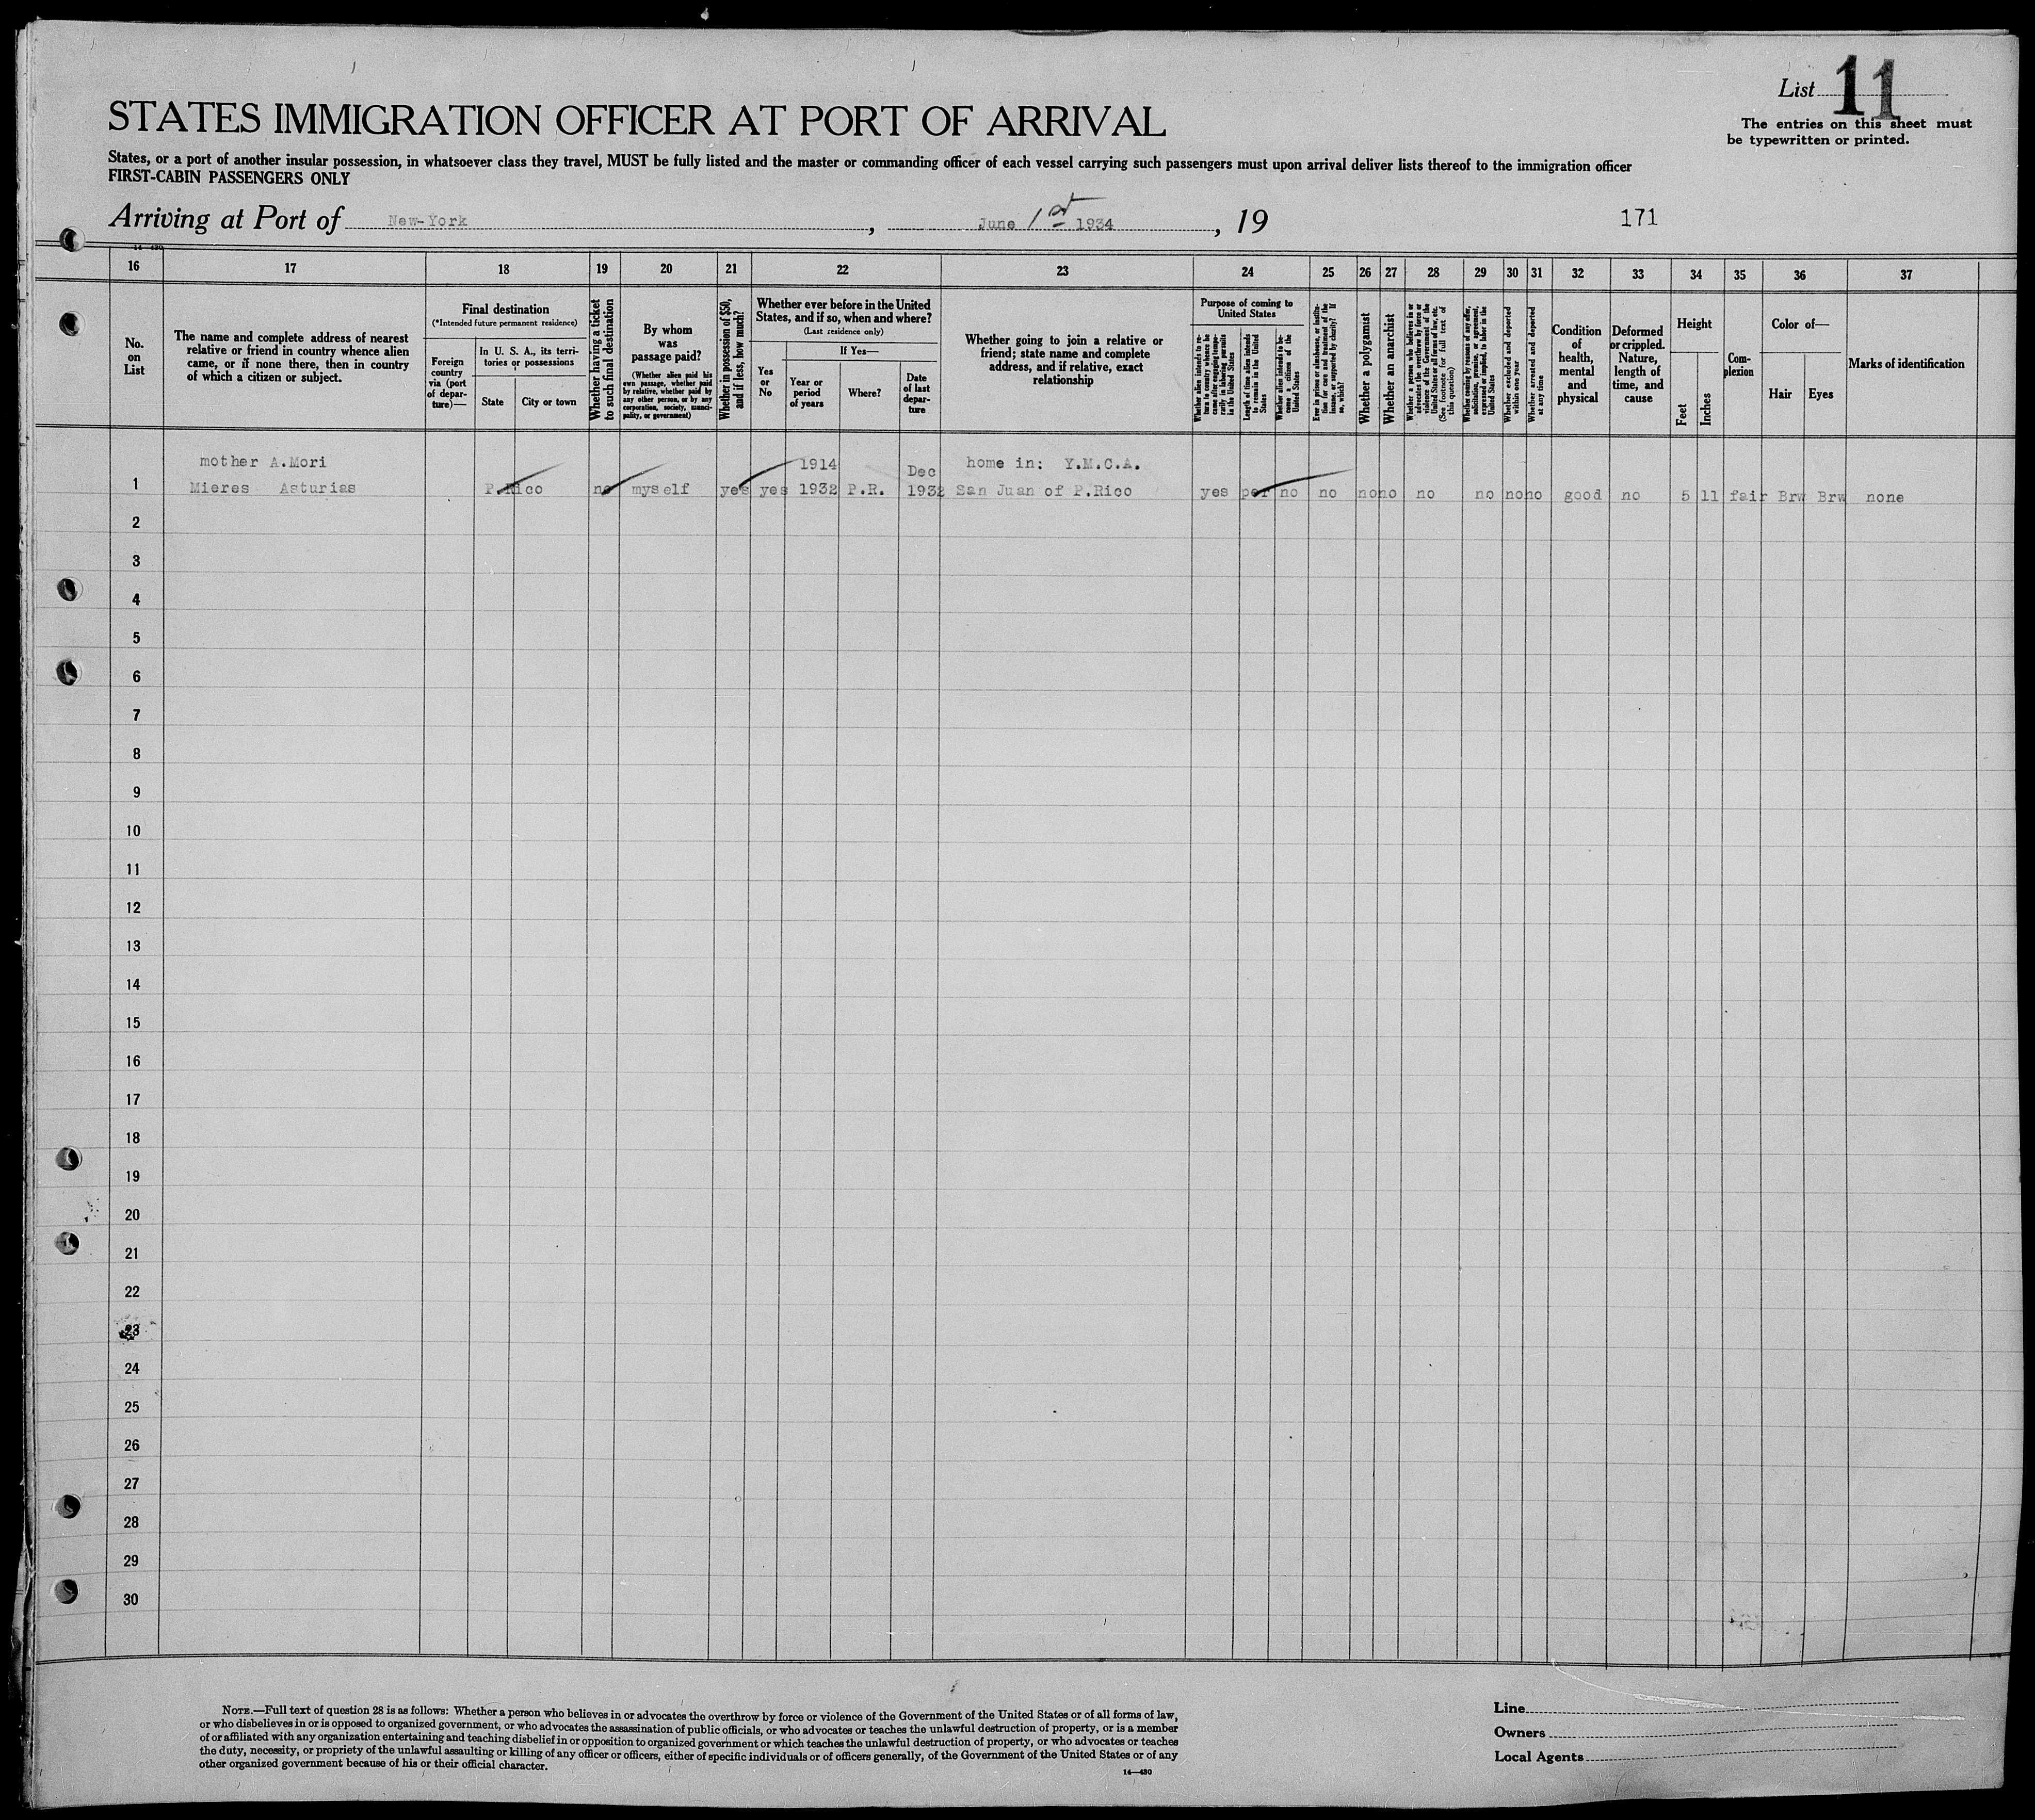 List 11
The entries on this sheet must
be typewritten or printed.
STATES IMMIGRATION OFFICER AT PORT OF ARRIVAL
States, or a port of another insular possession, in whatsoever class they travel, MUST be fully listed and the master or commanding officer of each vessel carrying such passengers must upon arrival deliver lists thereof to the immigration officer
FIRST-CABIN PASSENGERS ONLY
Arriving at Port of New-York, June 1st 1934, 19
171
14-430
16 17 18 19 20 21 22 23 24 25 26 27 28 29 30 31 32 33 34 35 36 37
No.
on
List
The name and complete address of nearest
relative or friend in country whence alien
came, or if none there, then in country
of which a citizen or subject.
Final destination
(*Intended future permanent residence)
Foreign
country
via (port
of depar-
ture)—
In U. S. A., its terri-
tories or possessions
State
City or town
Whether having a ticket
to such final destination
By whom
was
passage paid?
(Whether alien paid his
own passage, whether paid
by relative, whether paid by
any other person, or by any
corporation, society, munici-
pality, or government)
Whether in possession of $50,
and if less, how much?
Whether ever before in the United
States, and if so, when and where?
(Last residence only)
Yes
or
No
If Yes—
Year or
period
of years
Where?
Date
of last
depar-
ture
Whether going to join a relative or
friend; state name and complete
address, and if relative, exact
relationship
Purpose of coming to
United States
Whether alien intends to re-
turn to country whence he
came after engaging tempo-
rarily in laboring pursuits
in the United States
Length of time alien intends
to remain in the United
States
Whether alien intends to be-
come a citizen of the
United States
Ever in prison or almshouse, or institu-
tion for care and treatment of the
insane, or supported by charity? If
so, which?
Whether a polygamist
Whether an anarchist
Whether a person who believes in or
advocates the overthrow by force or
violence of the Government of the
United States or all forms of law, etc.
(See footnote for full text of
this question)
Whether coming by reasons of any offer,
solicitation, promise, or agreement,
expressed or implied, to labor in the
United States
Whether excluded and deported
within one year
Whether arrested and deported
at any time
Condition
of
health,
mental
and
physical
Deformed
or crippled.
Nature,
length of
time, and
cause
Height
Feet
Inches
Com-
plexion
Color of—
Hair
Eyes
Marks of identification
mother A.Mori 1914 Dec home in: Y.M.C.A.
1 Mieres Asturias P.Rico no myself yes yes 1932 P.R. 1932 San Juan of P.Rico yes per no no no no no no no no good no 5 11 fair Brw Brw none
2
3
4
5
6
7
8
9
10
11
12
13
14
15
16
17
18
19
20
21
22
23
24
25
26
27
28
29
30
NOTE.—Full text of question 28 is as follows: Whether a person who believes in or advocates the overthrow by force or violence of the Government of the United States or of all forms of law,
or who disbelieves in or is opposed to organized government, or who advocates the assassination of public officials, or who advocates or teaches the unlawful destruction of property, or is a member
of or affiliated with any organization entertaining and teaching disbelief in or opposition to organized government or which teaches the unlawful destruction of property, or who advocates or teaches
the duty, necessity, or propriety of the unlawful assaulting or killing of any officer or officers, either of specific individuals or of officers generally, of the Government of the United States or of any
other organized government because of his or their official character.
14—430
Line
Owners
Local Agents